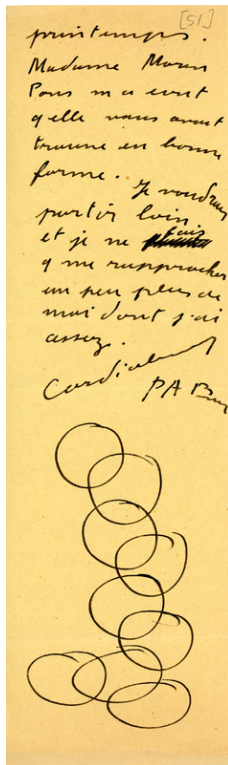 [51]
printemps.
Madame Moran
Pons m a ecrit
q elle vous avait
trouvé en bonne
forme.
Je voudrais
partir loin
et je ne fais
q me rapprocher
un peu plus de
moi dont j ai
assez.
Cordialement
PAB